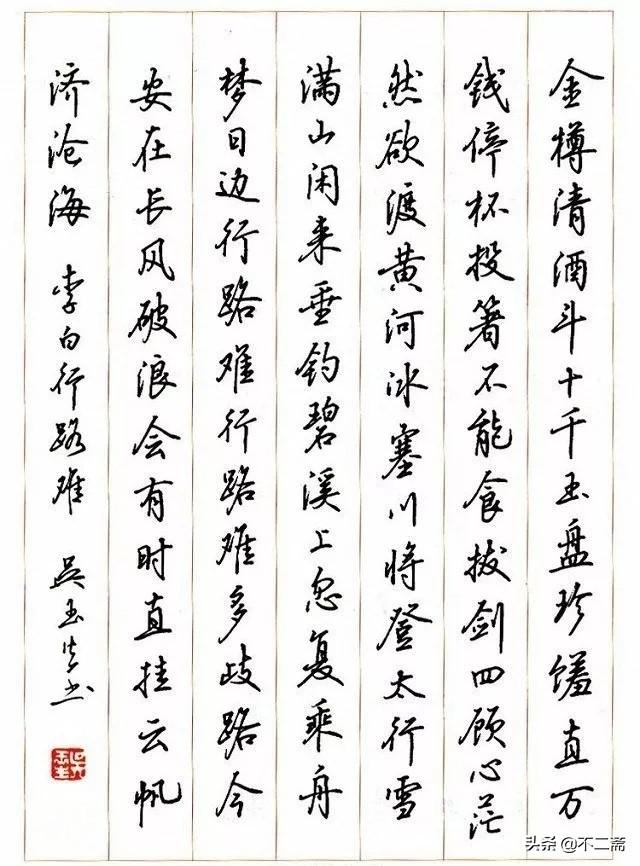 金樽清酒斗十千玉盘珍馐直万
钱停杯投箸不能食拔剑四顾心茫
然欲渡黄河冰塞川将登太行雪
满山闲来垂钓碧溪上忽复乘舟
梦日边行路难行路难多歧路今
安在长风破浪会有时直挂云帆
济沧海 李白行路难 吴玉生书
头条 @不二斋